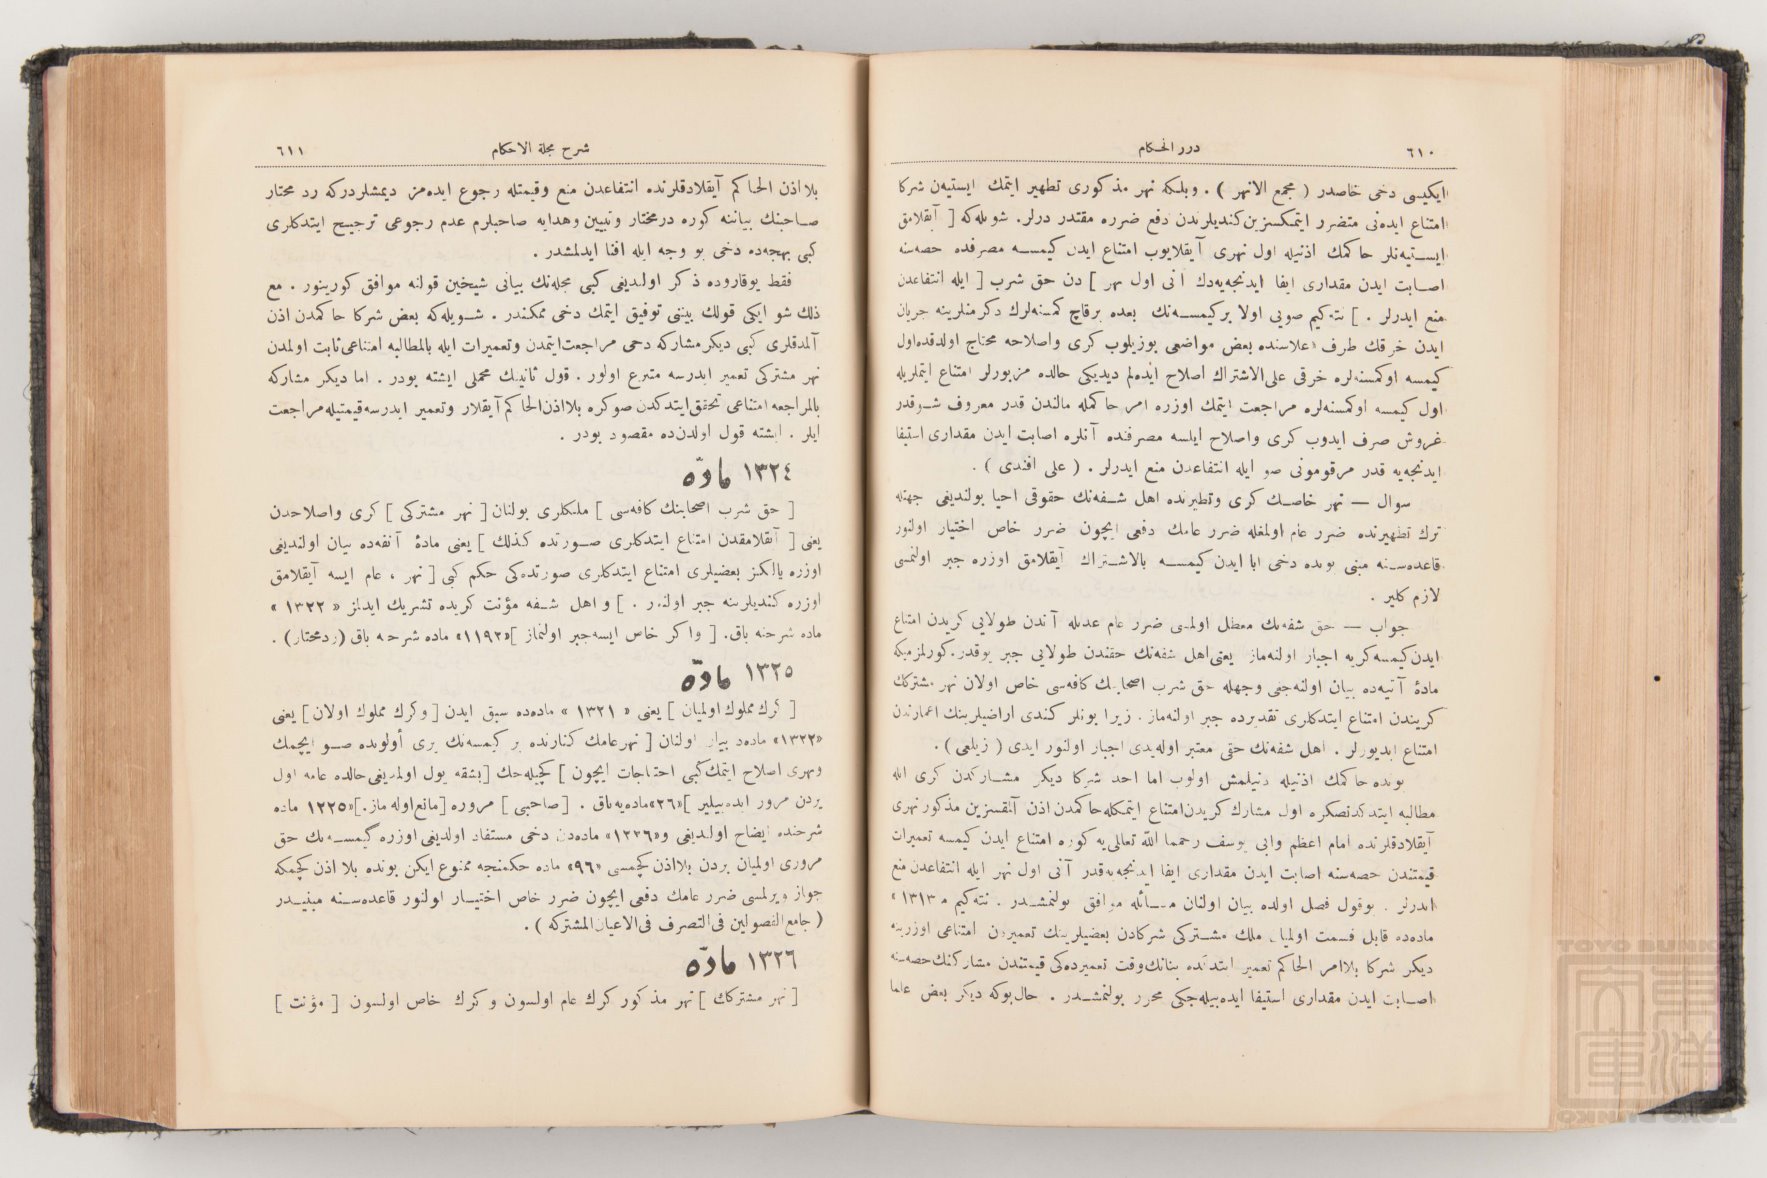 ٦١٠
درر الحكام
ايكيسی دخی خاصدر ( مجمع الانهر ) . وبلكه نهر مذكوری تطهير ايتمك ايستيه‌ن شركا
امتناع ايده‌نی متضرر ايتمكسزين كنديلرندن دفع ضرره مقتدر درلر . شويله‌كه [ آيقلامق
ايستيه‌نلر حاكمك اذنيله اول نهری آيقلايوب امتناع ايدن كيمسه مصرفده حصه‌سنه
اصابت ايدن مقداری ايفا ايدنجه‌يه‌دك آنی اول نهر ] دن حق شرب [ ايله انتفاعدن
منع ايدرلر . ] نته‌كيم صويی اولا بركيمسه‌نك بعده برقاچ كمسنه‌لرك دكرمنلرينه جريان
ايدن خرقك طرف اعلاسنده بعض مواضعی بوزيلوب كری واصلاحه محتاج اولدقده اول
كيمسه اوكمسنه‌لره خرقی علی‌الاشتراك اصلاح ايده‌لم ديديكی حالده مزبورلر امتناع ايتملريله
اول كيمسه اوكمسنه‌لره مراجعت ايتمك اوزره امر حاكمله مالندن قدر معروف شوقدر
غروش صرف ايدوب كری واصلاح ايلسه مصرفنده آنلره اصابت ايدن مقداری استيفا
ايدنجه‌يه قدر مرقومونی صو ايله انتفاعدن منع ايدرلر . ( علی افندی ) .
سوال — نهر خاصك كری وتطهيرنده اهل شفه‌نك حقوقی احيا بولنديغی جهتله
ترك تطهيرنده ضرر عام اولمغله ضرر عامك دفعی ايچون ضرر خاص اختيار اولنور
قاعده‌سنه مبنی بونده دخی ابا ايدن كيمسه بالاشتراك آيقلامق اوزره جبر اولنمسی
لازم كلير .
جواب — حق شفه‌نك معطل اولمسی ضرر عام عديله آندن طولايی كريدن امتناع
ايدن كيمسه كريه اجبار اولنه‌ماز يعنی اهل شفه‌نك حقندن طولايی جبر يوقدر. كورلمزميكه
ماده‌ٔ آتيه‌ده بيان اولنه‌جغی وجهله حق شرب اصحابنك كافه‌سی خاص اولان نهر مشتركك
كريندن امتناع ايتدكلری تقديرده جبر اولنه‌ماز . زيرا بونلر كندی اراضيلرينك اعمارندن
امتناع ايديورلر . اهل شفه‌نك حقی معتبر اوله‌يدی اجبار اولنور ايدی ( زيلعی ) .
بونده حاكمك اذنيله دنيلمش اولوب اما احد شركا ديكر مشاركندن كری ايله
مطالبه ايتدكدنصكره اول مشارك كريدن امتناع ايتمكله حاكمدن اذن آلنقسزين مذكور نهری
آيقلادقلرنده امام اعظم وابی يوسف رحمهما الله تعالی‌يه كوره امتناع ايدن كيمسه تعميرات
قيمتندن حصه‌سنه اصابت ايدن مقداری ايفا ايدنجه‌يه‌قدر آنی اول نهر ايله انتفاعدن منع
ايدرلر . بوقول فصل اولده بيان اولنان مسائله موافق بولنمشدر . نته‌كيم « ١٣١٣ »
ماده‌ده قابل قسمت اولميان ملك مشتركی شركادن بعضيلرينك تعميردن امتناعی اوزرينه
ديكر شركا بلاامر الحاكم تعمير ايتدكده بنانك‌وقت تعميرده‌كی قيمتندن مشاركنك‌حصه‌سنه
اصابت ايدن مقداری استيفا ايده‌بيله‌جكی محرر بولنمشدر . حال‌بوكه ديكر بعض علما
شرح مجلة الاحكام
٦١١
بلا اذن الحاكم آيقلادقلرنده انتفاعدن منع وقيمتله رجوع ايده‌مز ديمشلردركه رد محتار
صاحبنك بياننه كوره درمختار وتبيين وهدايه صاحبلرم عدم رجوعی ترجيح ايتدكلری
كبی بهجه‌ده دخی بو وجه ايله افتا ايدلمشدر .
فقط يوقاروده ذكر اولنديغی كبی مجله‌نك بيانی شيخين قولنه موافق كورينور . مع
ذلك شو ايكی قولك بيننی توفيق ايتمك دخی ممكندر . شويله‌كه بعض شركا حاكمدن اذن
آلمدقلری كبی ديكر مشاركه دخی مراجعت‌ايتمدن وتعميرات ايله بالمطالبه امتناعی ثابت اولمدن
نهر مشتركی تعمير ايدرسه متبرع اولور . قول ثانينك محملی ايشته بودر . اما ديكر مشاركه
بالمراجعه امتناعی تحقق‌ايتدكدن صوكره بلااذن‌الحاكم آيقلار وتعمير ايدرسه‌قيمتيله‌مراجعت
ايلر . ايشته قول اولدن‌ده مقصود بودر .
١٣٢٤ مادّه
[ حق شرب اصحابنك كافه‌سی ] ملكلری بولنان [ نهر مشتركی ] كری واصلاحدن
يعنی [ آيقلامقدن امتناع ايتدكلری صورتده كذلك ] يعنی ماده‌ٔ آنفه‌ده بيان اولنديغی
اوزره يالكز بعضيلری امتناع ايتدكلری صورتده‌كی حكم كبی [ نهر ، عام ايسه آيقلامق
اوزره كنديلرينه جبر اولنور . ] و اهل شفه مؤنت كريده تشريك ايدلمز « ١٣٢٢ »
ماده شرحنه باق. [ واكر خاص ايسه‌جبر اولنماز ] «١١٩٢» ماده شرحنه باق (ردمحتار) .
١٣٢٥ مادّه
[ كرك مملوك اولميان ] يعنی « ١٣٢١ » ماده‌ده سبق ايدن [ وكرك مملوك اولان ] يعنی
«١٣٢٢» ماده‌ده بيان اولنان [ نهرعامك كنارنده بر كيمسه‌نك يری اولوبده صو ايچمك
ونهری اصلاح ايتمك كبی احتياجات ايچون ] كچيله‌جك [بشقه يول اولمديغی‌حالده عامه اول
يردن مرور ايده‌بيلير ] «٢٦»ماده‌يه‌باق . [ صاحبی ] مروره [مانع‌اوله‌ماز.] «١٢٢٥ ماده
شرحنده ايضاح اولنديغی و«١٢٢٦» ماده‌دن دخی مستفاد اولديغی اوزره كيمسه‌نك حق
مروری اولميان يردن بلااذن كچمسی «٩٦» ماده حكمنجه ممنوع ايكن بونده بلا اذن كچمكه
جواز ويرلمسی ضرر عامك دفعی ايچون ضرر خاص اختيار اولنور قاعده‌سنه مبنيدر
( جامع‌الفصولين فی‌التصرف فی‌الاعيان‌المشتركه ) .
١٣٢٦ مادّه
[ نهر مشتركك ] نهر مذكور كرك عام اولسون وكرك خاص اولسون [ مؤنت ]
TOYO BUNKO